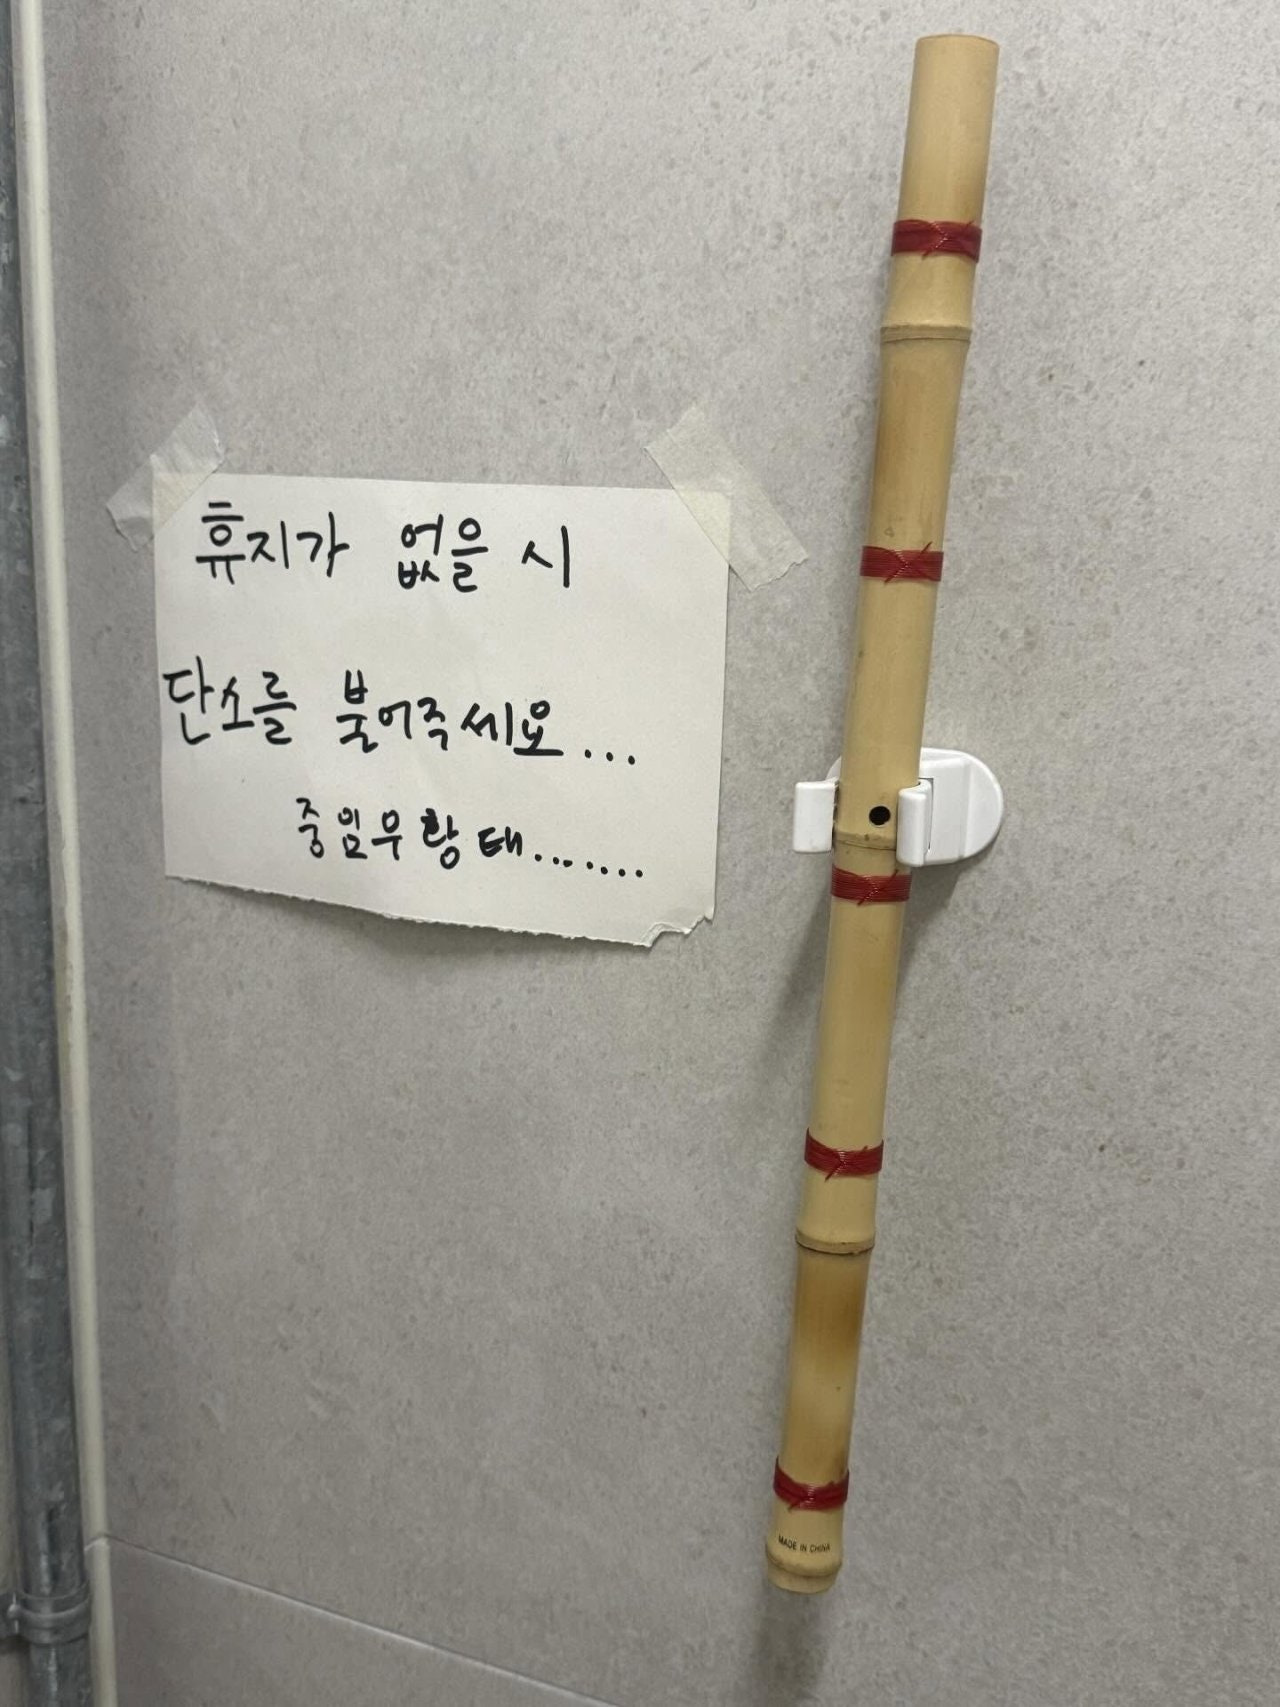 휴지가 없을 시
단소를 불어주세요...
중임무황태.......
MADE IN CHINA